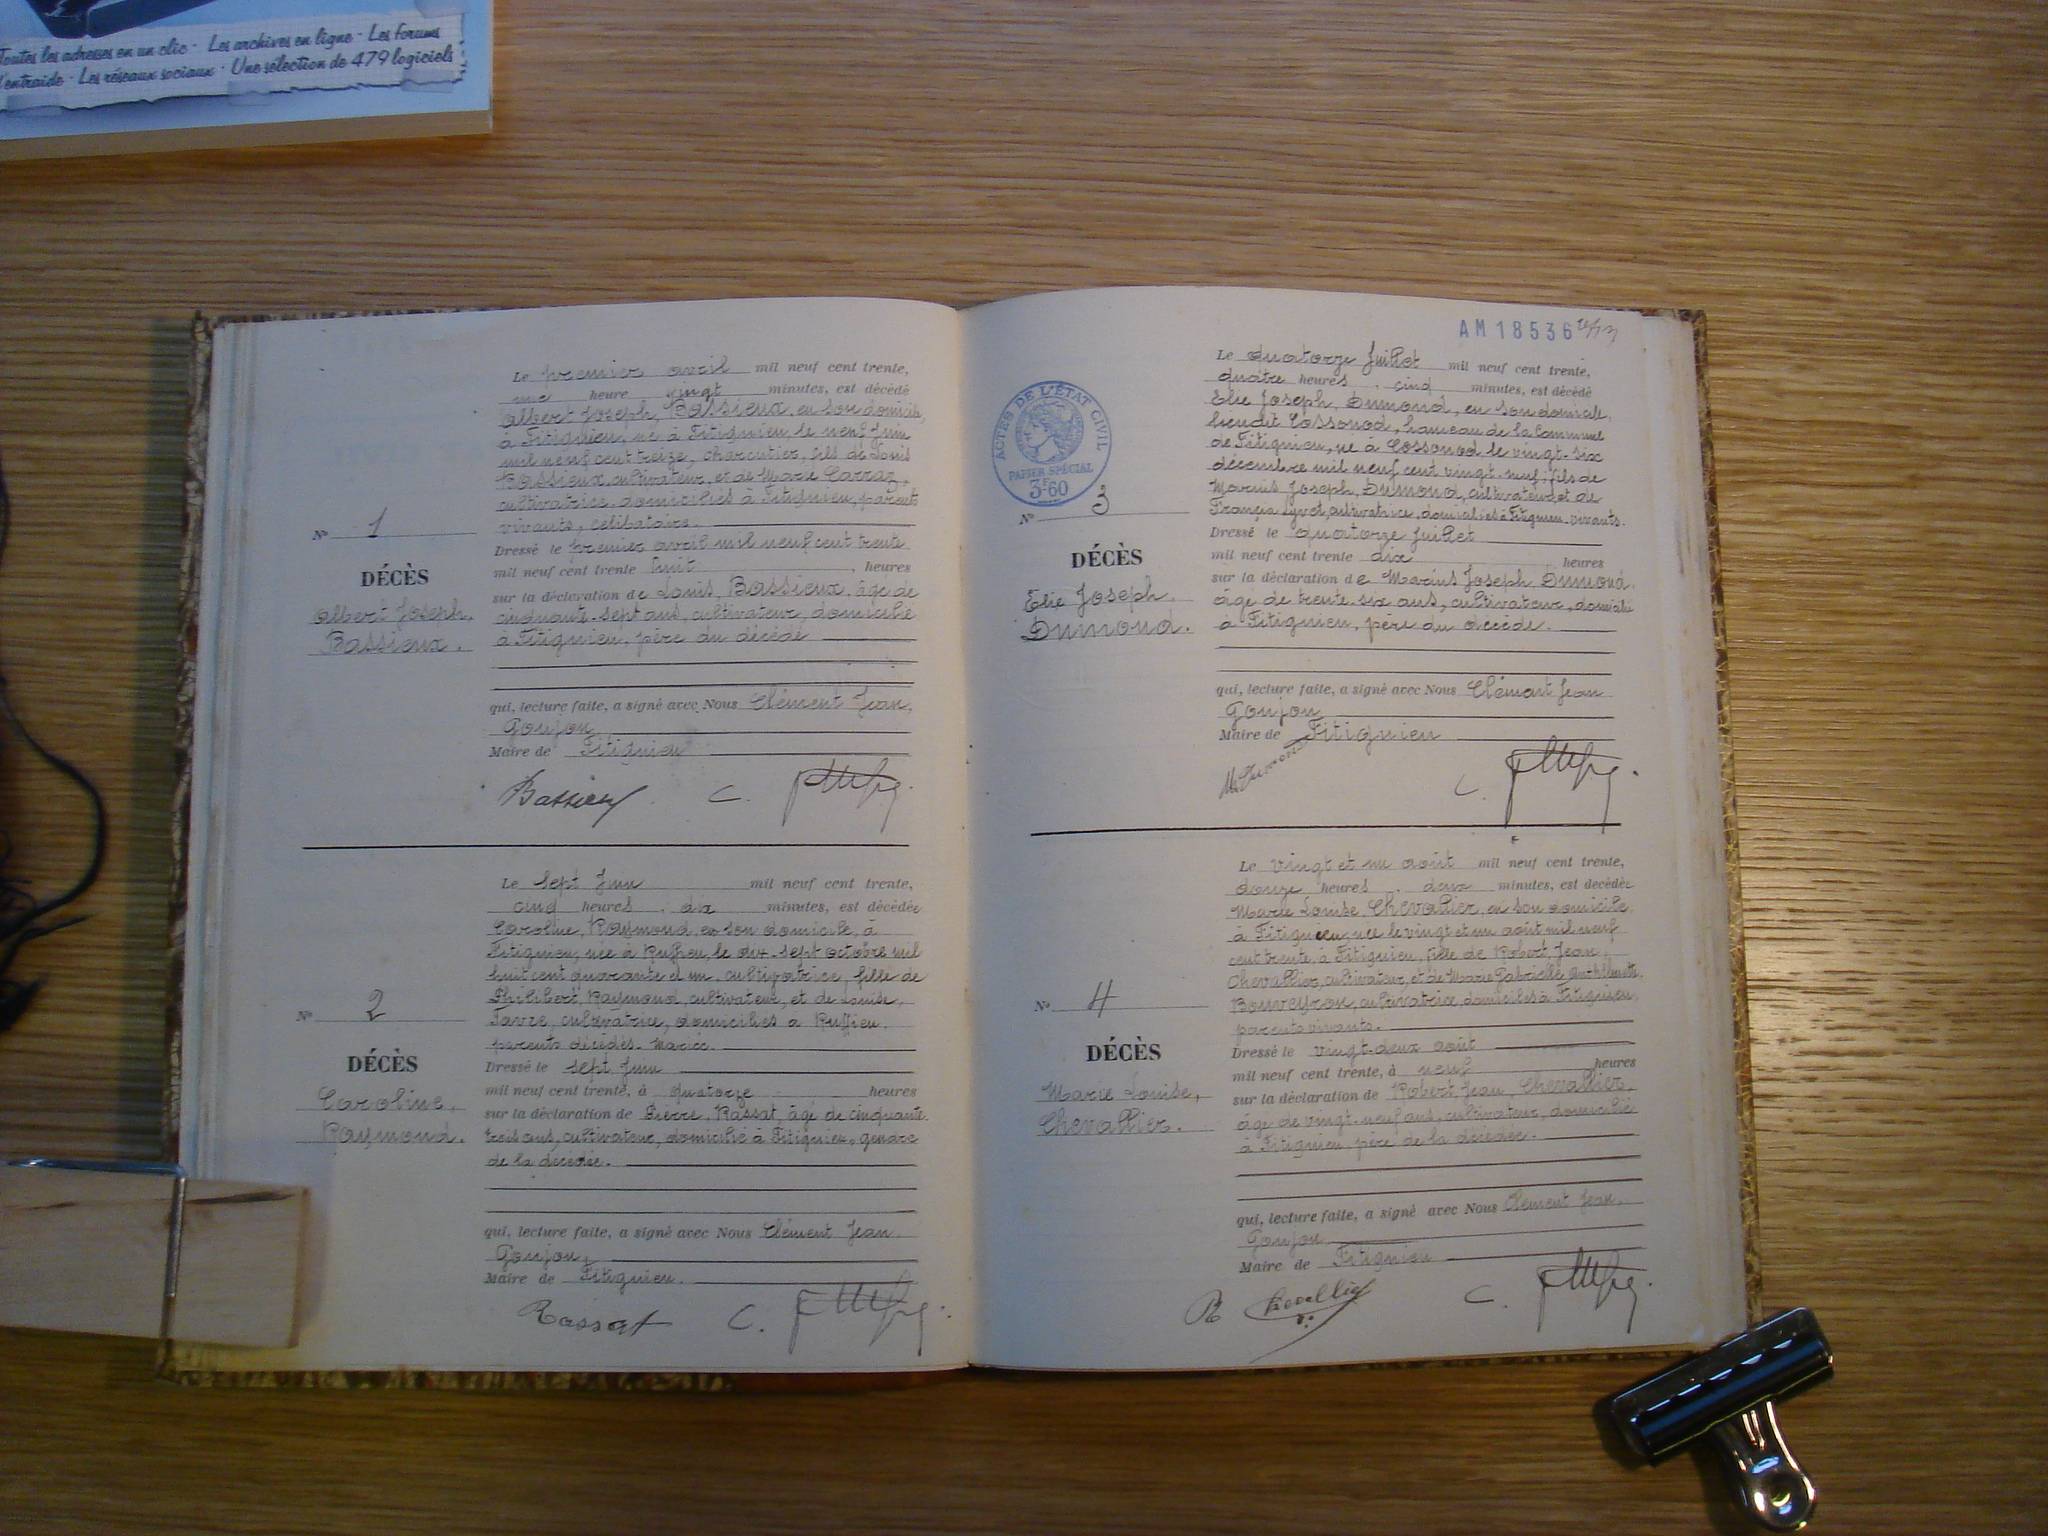 Toutes les adresses en un clic · Les archives en ligne · Les forums
d'entraide · Les réseaux sociaux · Une sélection de 479 logiciels
Le premier avril mil neuf cent trente,
une heure vingt minutes, est décédé
Albert Joseph, Bassieux, en son domicile,
à Fitignieu, né à Fitignieu le neuf Juin
mil neuf cent treize, charcutier, fils de Louis
Bassieux cultivateur, et de Marie Carraz,
cultivatrice, domiciliés à Fitignieu, parents
vivants, célibataire.
N° 1
DÉCÈS
Albert Joseph,
Bassieux.
Dressé le premier avril mil neuf cent trente
mil neuf cent trente huit heures
sur la déclaration de Louis, Bassieux, âgé de
cinquante-sept ans, cultivateur, domicilié
à Fitignieu, père du décédé
qui, lecture faite, a signé avec Nous Clément Jean,
Goujon,
Maire de Fitignieu
Bassieux C.
Le sept Juin mil neuf cent trente,
cinq heures, dix minutes, est décédée
Caroline, Raymond, en son domicile, à
Fitignieu, née à Ruffieu, le dix-sept octobre mil
huit cent quarante et un, cultivatrice, fille de
Philibert, Raymond, cultivateur, et de Louise,
Favre, cultivatrice, domiciliés à Ruffieu.
parents décédés. Mariée.
N° 2
DÉCÈS
Caroline,
Raymond.
Dressé le sept Juin
mil neuf cent trente, à quatorze heures
sur la déclaration de Pierre, Rassat, âgé de cinquante
trois ans, cultivateur, domicilié à Fitignieu, gendre
de la décédée.
qui, lecture faite, a signé avec Nous Clément Jean
Goujon,
Maire de Fitignieu.
Rassat C.
AM18536
ACTES DE L'ÉTAT CIVIL
PAPIER SPÉCIAL
3F60
Le quatorze Juillet mil neuf cent trente,
quatre heures, cinq minutes, est décédé
Elie Joseph, Dumond, en son domicile,
lieu dit Cossonod, hameau de la Commune
de Fitignieu, né à Cossonod le vingt-six
décembre mil neuf cent vingt-neuf, fils de
Marius Joseph, Dumond, cultivateur, et de
Yvet, cultivatrice, domiciliés à Fitignieu vivants.
N° 3
DÉCÈS
Elie Joseph
Dumond.
Dressé le quatorze Juillet
mil neuf cent trente dix heures
sur la déclaration de Marius Joseph Dumond,
âgé de trente-six ans, cultivateur, domicilié
à Fitignieu, père du décédé.
qui, lecture faite, a signé avec Nous Clément Jean
Goujon
Maire de Fitignieu
C.
Le vingt et un août mil neuf cent trente,
douze heures, deux minutes, est décédée
Marie Louise, Chevallier, en son domicile,
à Fitignieu, née le vingt et un août mil neuf
cent trente, à Fitignieu, fille de Robert, Jean,
Chevallier, cultivateur, et de Marie Gabrielle Anthelmette
Bouveyron, cultivatrice, domiciliés à Fitignieu,
parents vivants.
N° 4
DÉCÈS
Marie Louise,
Chevallier.
Dressé le vingt-deux août
mil neuf cent trente, à neuf heures
sur la déclaration de Robert, Jean, Chevallier,
âgé de vingt-neuf ans, cultivateur, domicilié
à Fitignieu, père de la décédée.
qui, lecture faite, a signé avec Nous Clément Jean,
Goujon
Maire de Fitignieu
R Chevallier C.